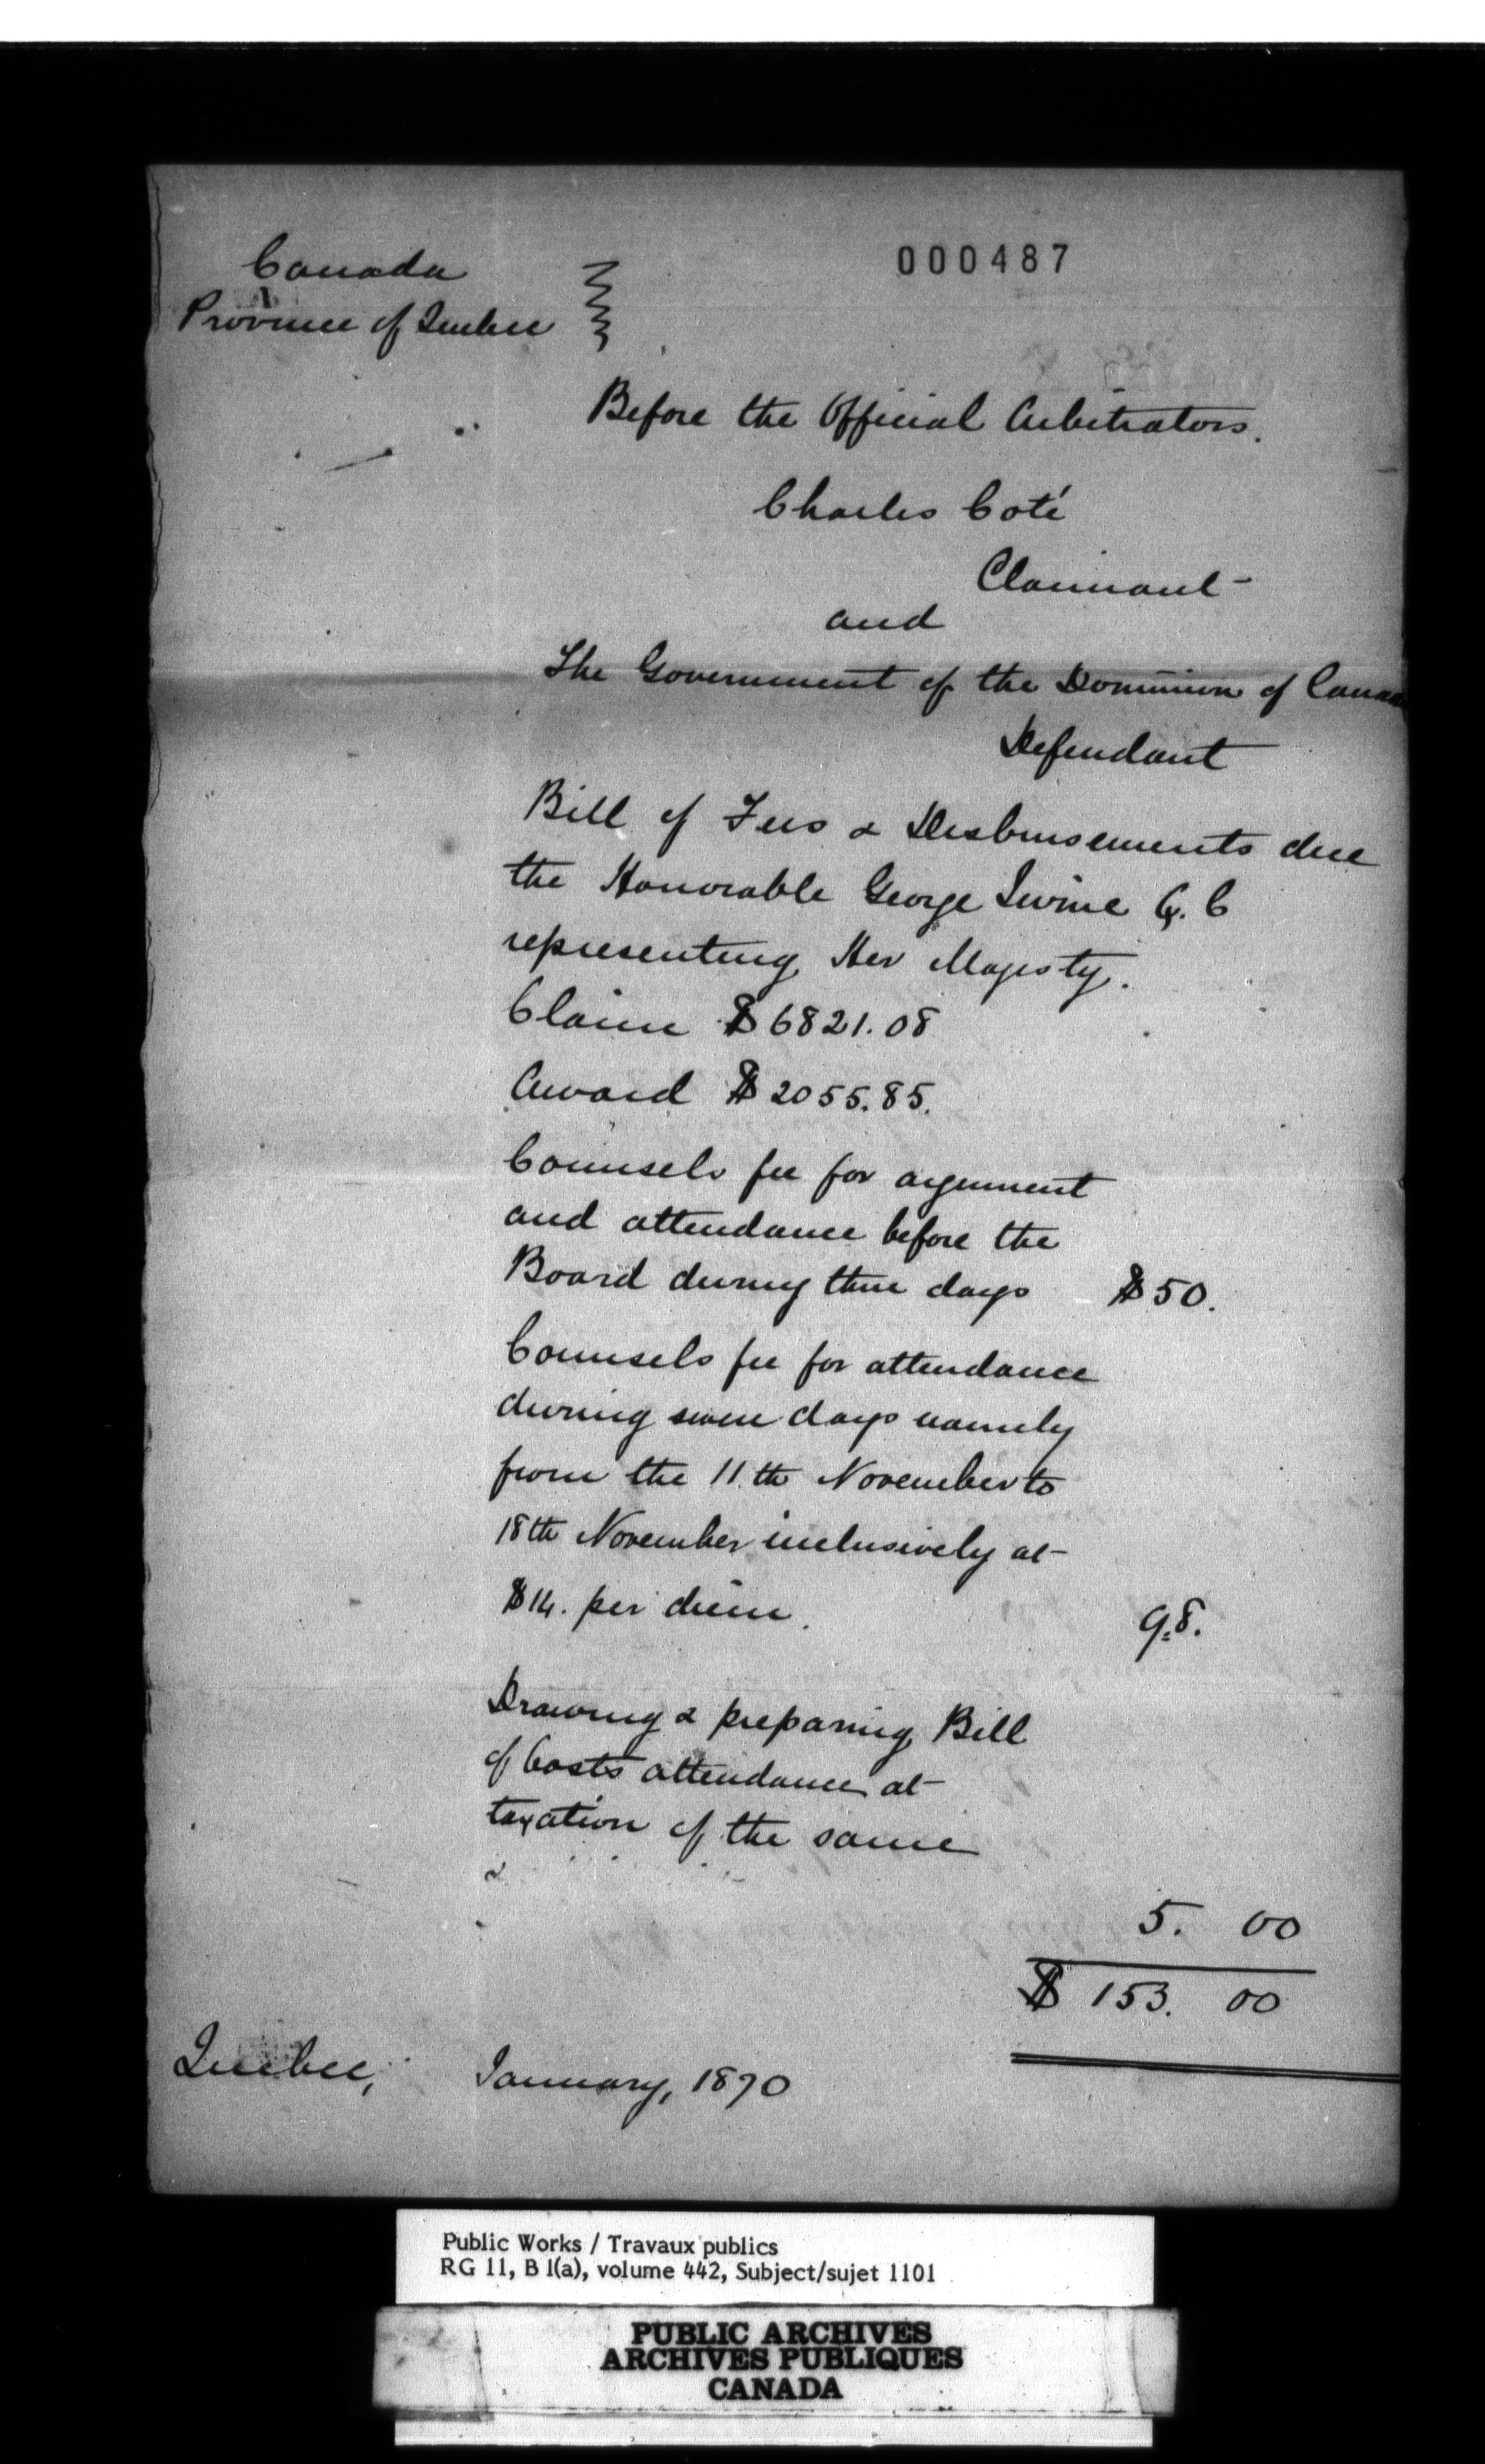 000487
Canada
Province of Quebec
Before the Official Arbitrators.
Charles Coté
Claimant
and
The Government of the Dominion of Canada
Defendant
Bill of Fees & Disbursements due
the Honorable George Irvine Q. C
representing Her Majesty.
Claim $6821.08
Award $2055.85.
Counsels fee for argument
and attendance before the
Board during three days $50.
Counsels fee for attendance
during seven days namely
from the 11th November to
18th November inclusively at
$14. per diem. 98.
Drawing & preparing Bill
of Costs attendance at
taxation of the same
&
5. 00
$ 153. 00
Quebec, January, 1870
Public Works / Travaux publics
RG 11, B 1(a), volume 442, Subject/sujet 1101
PUBLIC ARCHIVES
ARCHIVES PUBLIQUES
CANADA